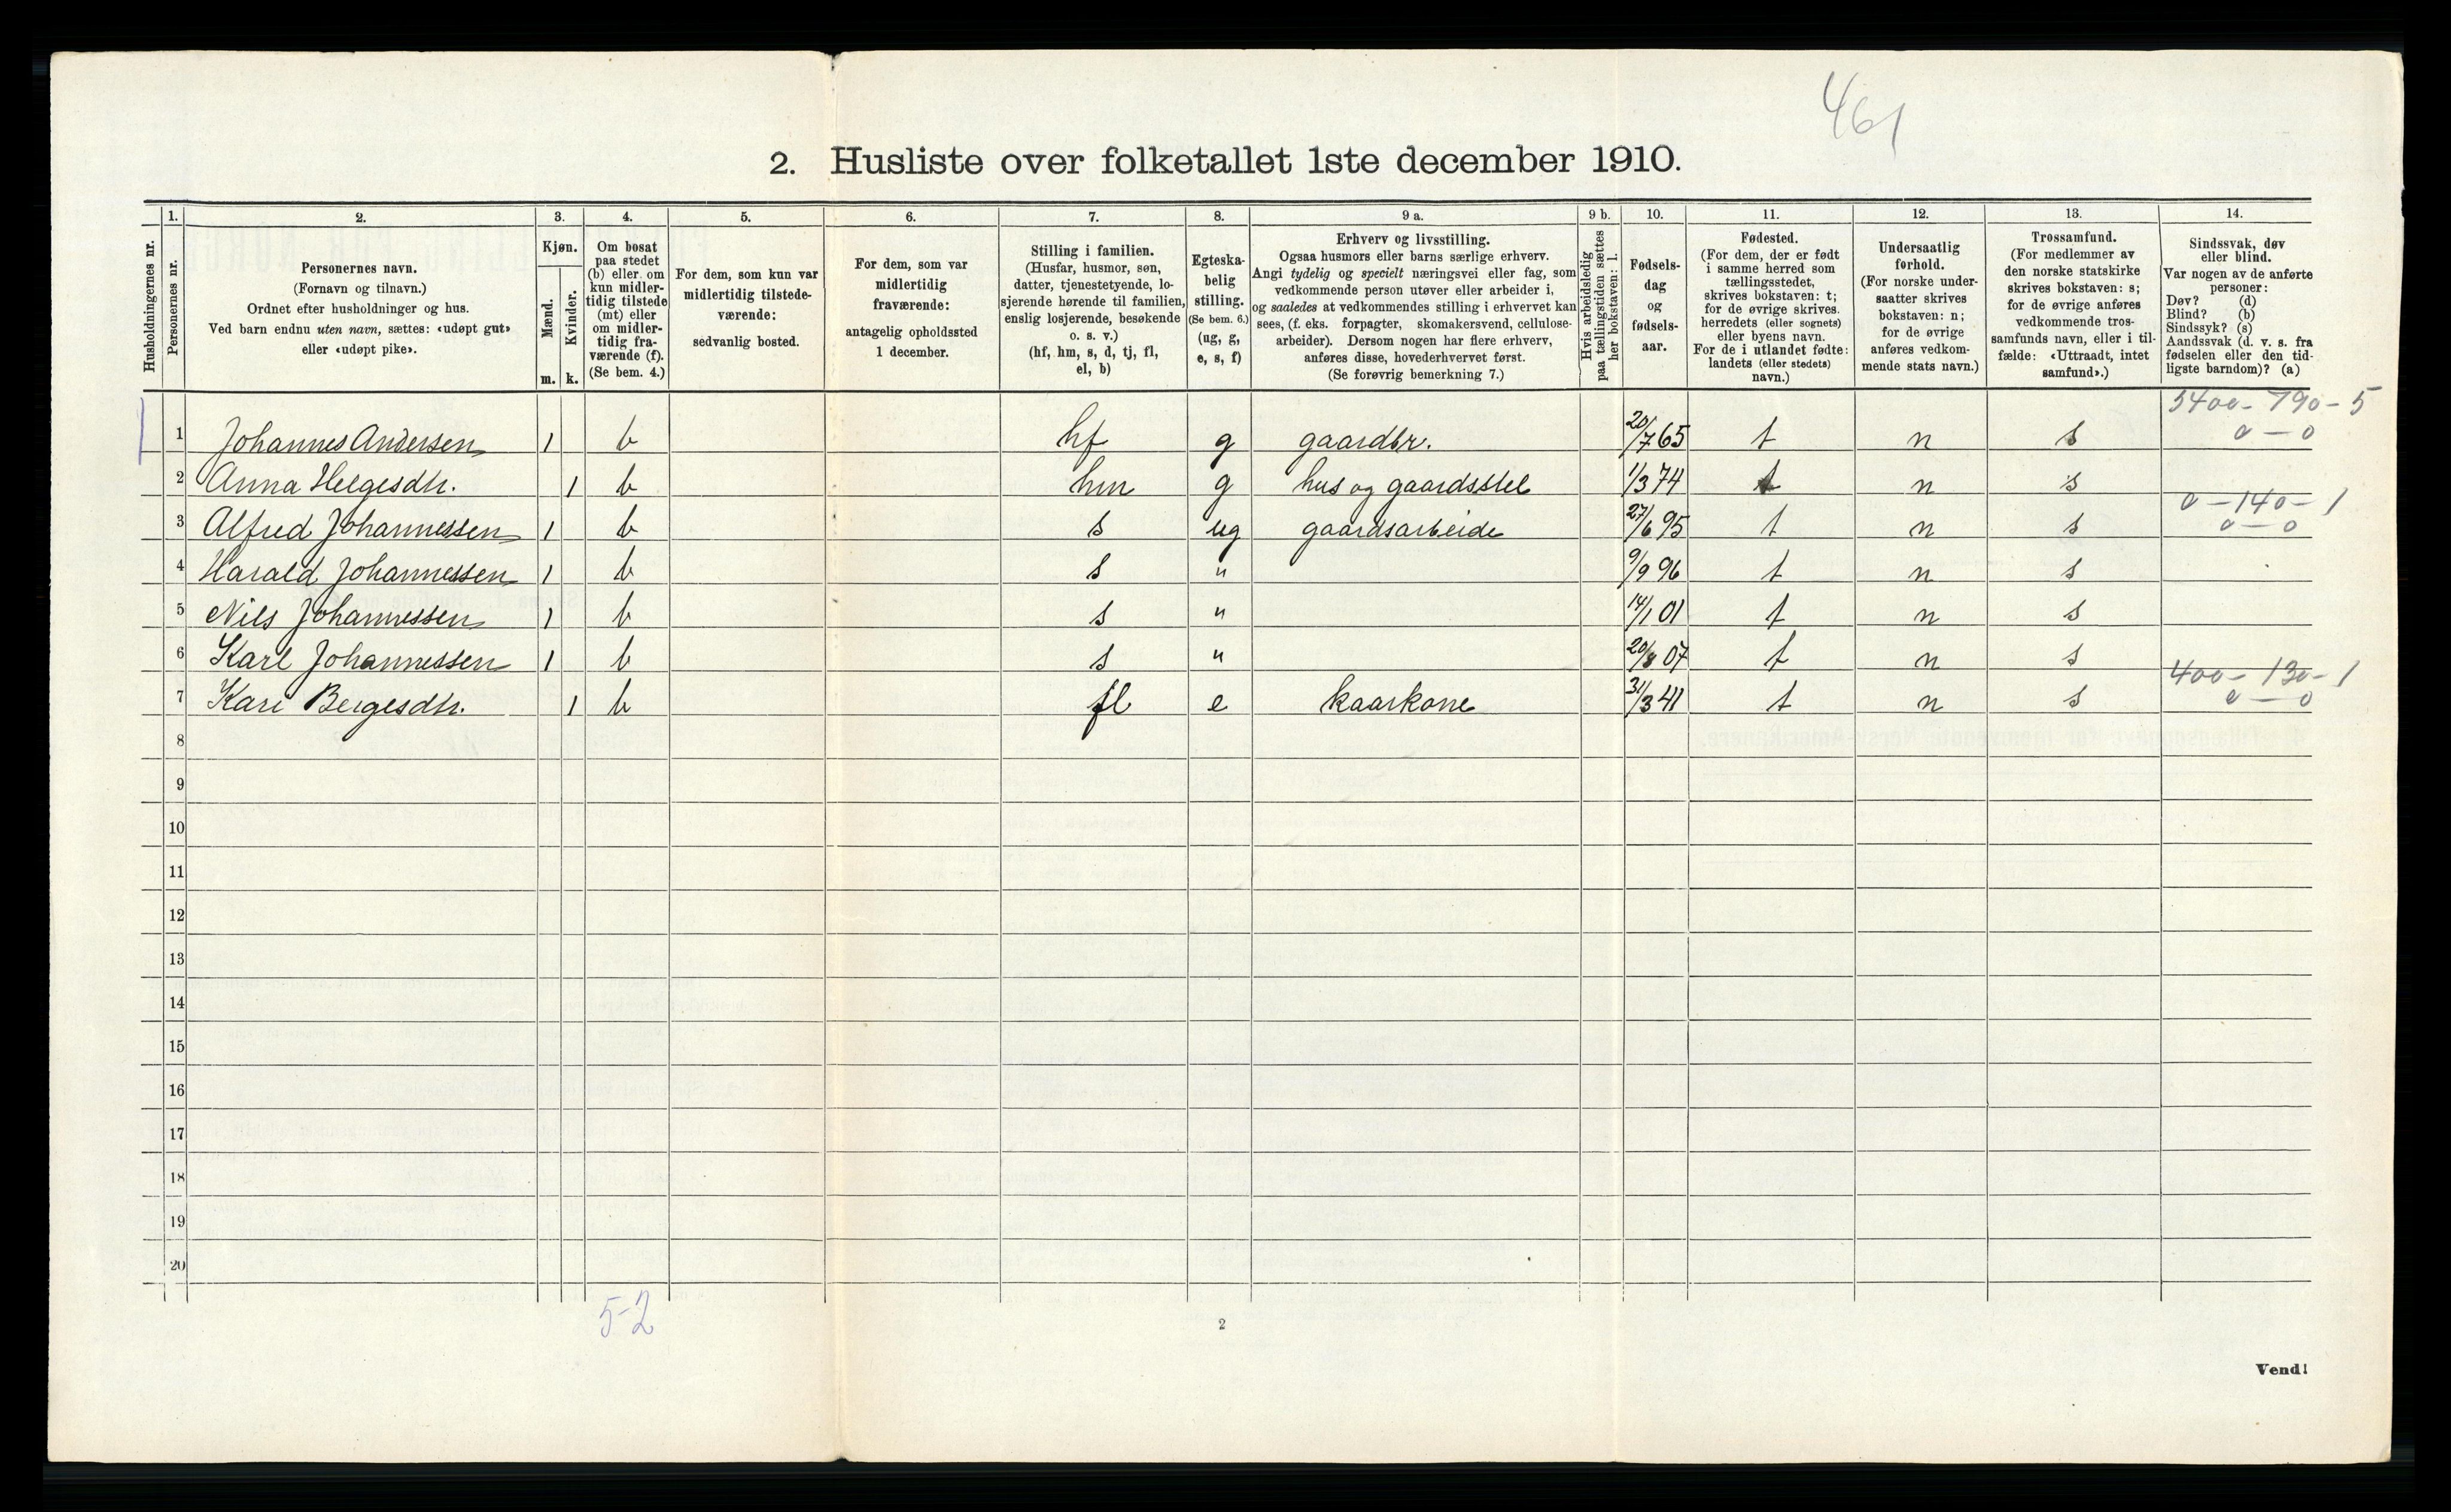 461
2. Husliste over folketallet 1ste december 1910.
Husholdningernes nr.
1.
Personernes nr.
2.
Personernes navn.
(Fornavn og tilnavn.)
Ordnet efter husholdninger og hus.
Ved barn endnu uten navn, sættes: «udøpt gut»
eller «udøpt pike».
3.
Kjøn.
Mænd.
Kvinder.
m. k.
4.
Om bosat
paa stedet
(b) eller om
kun midler-
tidig tilstede
(mt) eller
om midler-
tidig fra-
værende (f).
(Se bem. 4.)
5.
For dem, som kun var
midlertidig tilstede-
værende:
sedvanlig bosted.
6.
For dem, som var
midlertidig
fraværende:
antagelig opholdssted
1 december.
7.
Stilling i familien.
(Husfar, husmor, søn,
datter, tjenestetyende, lo-
sjerende hørende til familien,
enslig losjerende, besøkende
o. s. v.)
(hf, hm, s, d, tj, fl,
el, b)
8.
Egteska-
belig
stilling.
(Se bem. 6.)
(ug, g,
e, s, f)
9 a.
Erhverv og livsstilling.
Ogsaa husmors eller barns særlige erhverv.
Angi tydelig og specielt næringsvei eller fag, som
vedkommende person utøver eller arbeider i,
og saaledes at vedkommendes stilling i erhvervet kan
sees, (f. eks. forpagter, skomakersvend, cellulose-
arbeider). Dersom nogen har flere erhverv,
anføres disse, hovederhvervet først.
(Se forøvrig bemerkning 7.)
9 b.
Hvis arbeidsledig
paa tællingstiden sættes
her bokstaven: l.
10.
Fødsels-
dag
og
fødsels-
aar.
11.
Fødested.
(For dem, der er født
i samme herred som
tællingsstedet,
skrives bokstaven: t;
for de øvrige skrives
herredets (eller sognets)
eller byens navn.
For de i utlandet fødte:
landets (eller stedets)
navn.)
12.
Undersaatlig
forhold.
(For norske under-
saatter skrives
bokstaven: n;
for de øvrige
anføres vedkom-
mende stats navn.)
13.
Trossamfund.
(For medlemmer av
den norske statskirke
skrives bokstaven: s;
for de øvrige anføres
vedkommende tros-
samfunds navn, eller i til-
fælde: «Uttraadt, intet
samfund».)
14.
Sindssvak, døv
eller blind.
Var nogen av de anførte
personer:
Døv? (d)
Blind? (b)
Sindssyk? (s)
Aandssvak (d. v. s. fra
fødselen eller den tid-
ligste barndom)? (a)
5400 - 790 - 5
1 Johannes Andersen 1 b hf g gaardbr. 20/7 65 t n s 0 - 0
2 Anna Helgesdtr. 1 b hm g hus og gaardsstel 1/3 74 t n s
0 - 140 - 1
3 Alfred Johannessen 1 b s ug gaardsarbeide 27/6 95 t n s 0 - 0
4 Harald Johannessen 1 b s " 9/9 96 t n s
5 Nils Johannessen 1 b s " 14/1 01 t n s
6 Karl Johannessen 1 b s " 20/8 07 t n s
400 - 130 - 1
7 Kari Bergesdtr. 1 b fl e kaarkone 31/3 41 t n s 0 - 0
8
9
10
11
12
13
14
15
16
17
18
19
20
5-2
2
Vend!